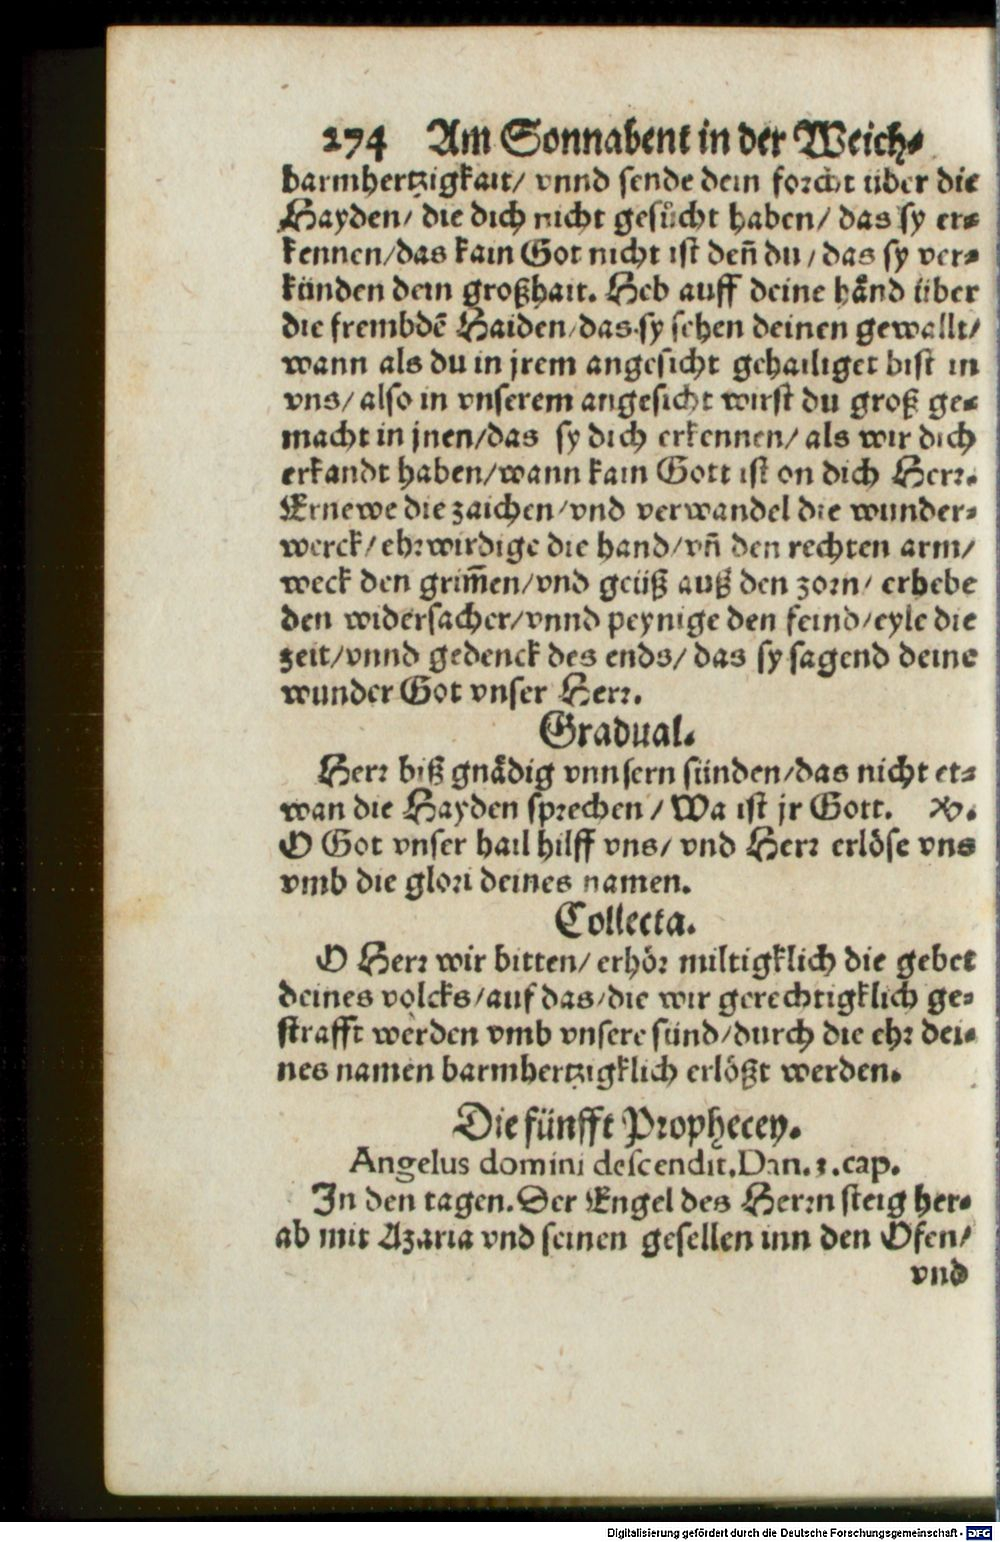 274 Am Sonnabent in der Weich⸗
barmhertzigkait/ vnnd sende dein forcht über die
Hayden/ die dich nicht gesůcht haben/ das sy er⸗
kennen/das kain Got nicht ist deñ du/ das sy ver⸗
künden dein großhait. Heb auff deine hånd über
die frembdẽ Haiden/das sy sehen deinen gewallt/
wann als du in jrem angesicht gehailiget bist in
vns/ also in vnserem angesicht wirst du groß ge⸗
macht in jnen/das sy dich erkennen/ als wir dich
erkandt haben/wann kain Gott ist on dich Herr.
Ernewe die zaichen/vnd verwandel die wunder⸗
werck/ ehrwirdige die hand/vñ den rechten arm/
weck den grim̃en/vnd geüß auß den zorn/ erhebe
den widersacher/vnnd peynige den feind/eyle die
zeit/vnnd gedenck des ends/ das sy sagend deine
wunder Got vnser Herr.
Gradual.
Herr biß gnådig vnnsern sünden/das nicht et⸗
wan die Hayden sprechen/ Wa ist jr Gott. ℣.
O Got vnser hail hilff vns/ vnd Herr erlöse vns
vmb die glori deines namen.
Collecta.
O Herr wir bitten/ erhör miltigklich die gebet
deines volcks/auf das/die wir gerechtigklich ge⸗
strafft werden vmb vnsere sünd/durch die ehr dei⸗
nes namen barmhertzigklich erlößt werden.
Die fünfft Prophecey.
Angelus domini descendit. Dan. 3. cap.
In den tagen. Der Engel des Herrn steig her⸗
ab mit Azaria vnd seinen gesellen inn den Ofen/
vnd
Digitalisierung gefördert durch die Deutsche Forschungsgemeinschaft - DFG